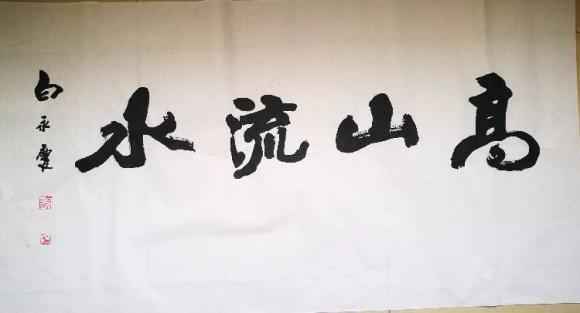 高山流水
白永慶